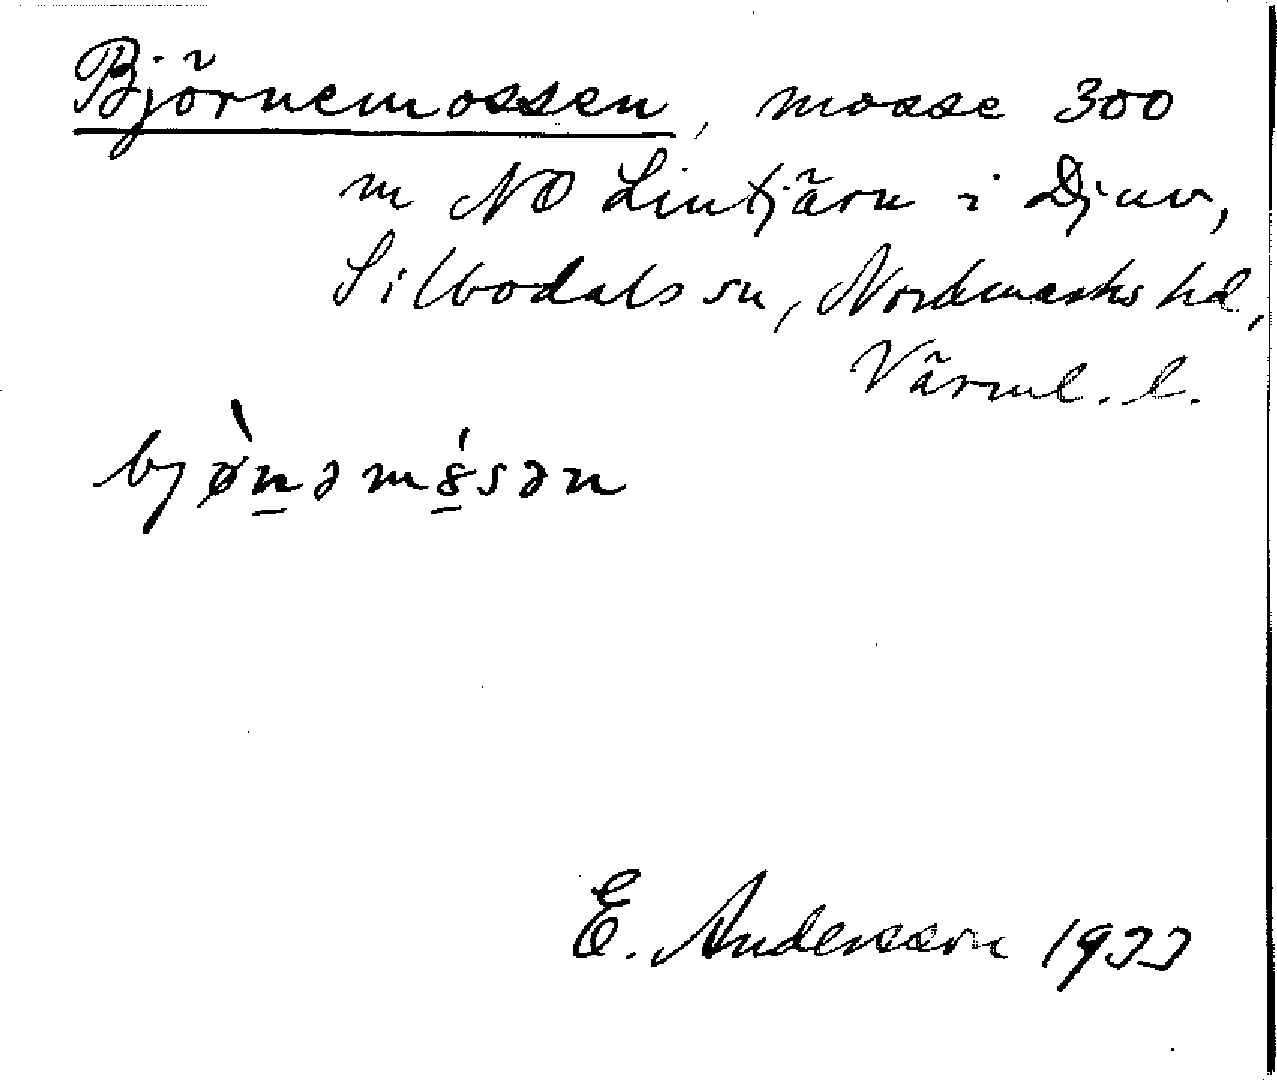 Björnemossen, mosse 300
m NO Lintjärn i Djuv,
Silbodals sn, Nordmarks hd,
Värml. l.
bjø̀n̲əmó̲sən
E. Andersson 1933